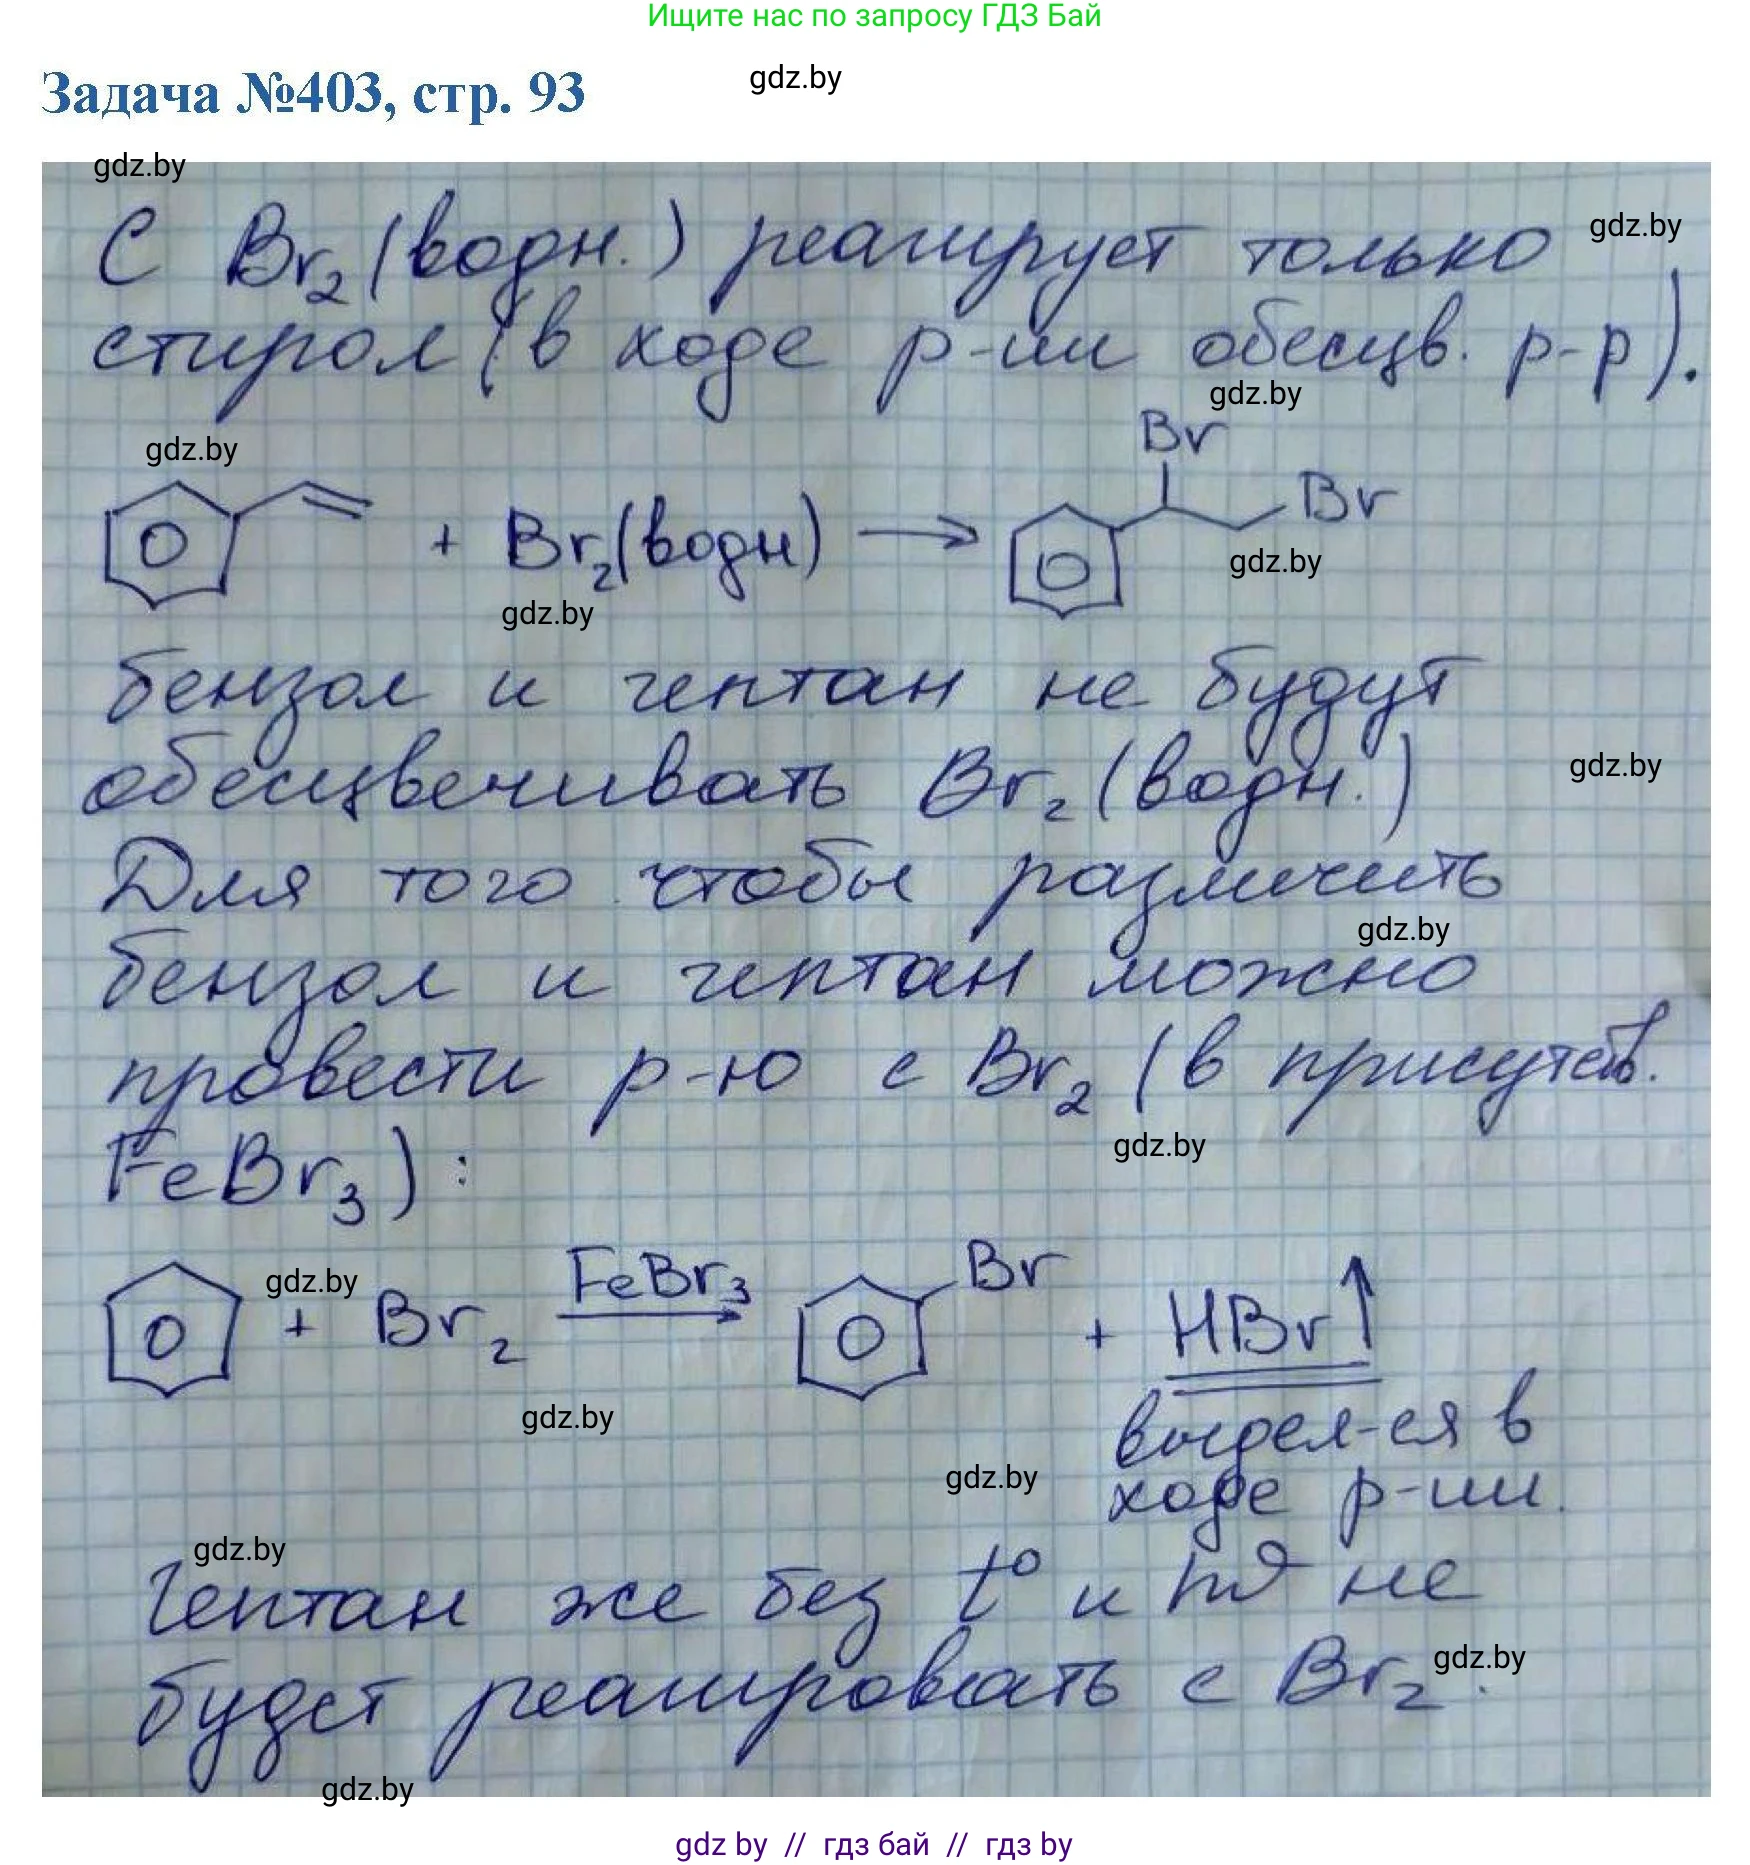 Ищите нас по запросу ГДЗ Бай
Задача №403, стр. 93
gdz.by
gdz.by
С Br₂ (водн.) реагирует только
gdz.by
стирол (в ходе р-ции обесцв. р-р).
gdz.by
gdz.by
Br
Br
+ Br₂(водн) →
gdz.by
gdz.by
бензол и гептан не будут
обесцвечивать Br₂ (водн.)
gdz.by
Для того чтобы различить
gdz.by
бензол и гептан можно
провести р-ю с Br₂ (в присутств.
FeBr₃) :
gdz.by
gdz.by
+ Br₂ FeBr₃ → Br + HBr↑
gdz.by
выдел-ся в
gdz.by
ходе р-ции.
gdz.by
Гептан же без t° и hν не
будет реагировать с Br₂.
gdz.by
gdz.by
gdz by // гдз бай // гдз by